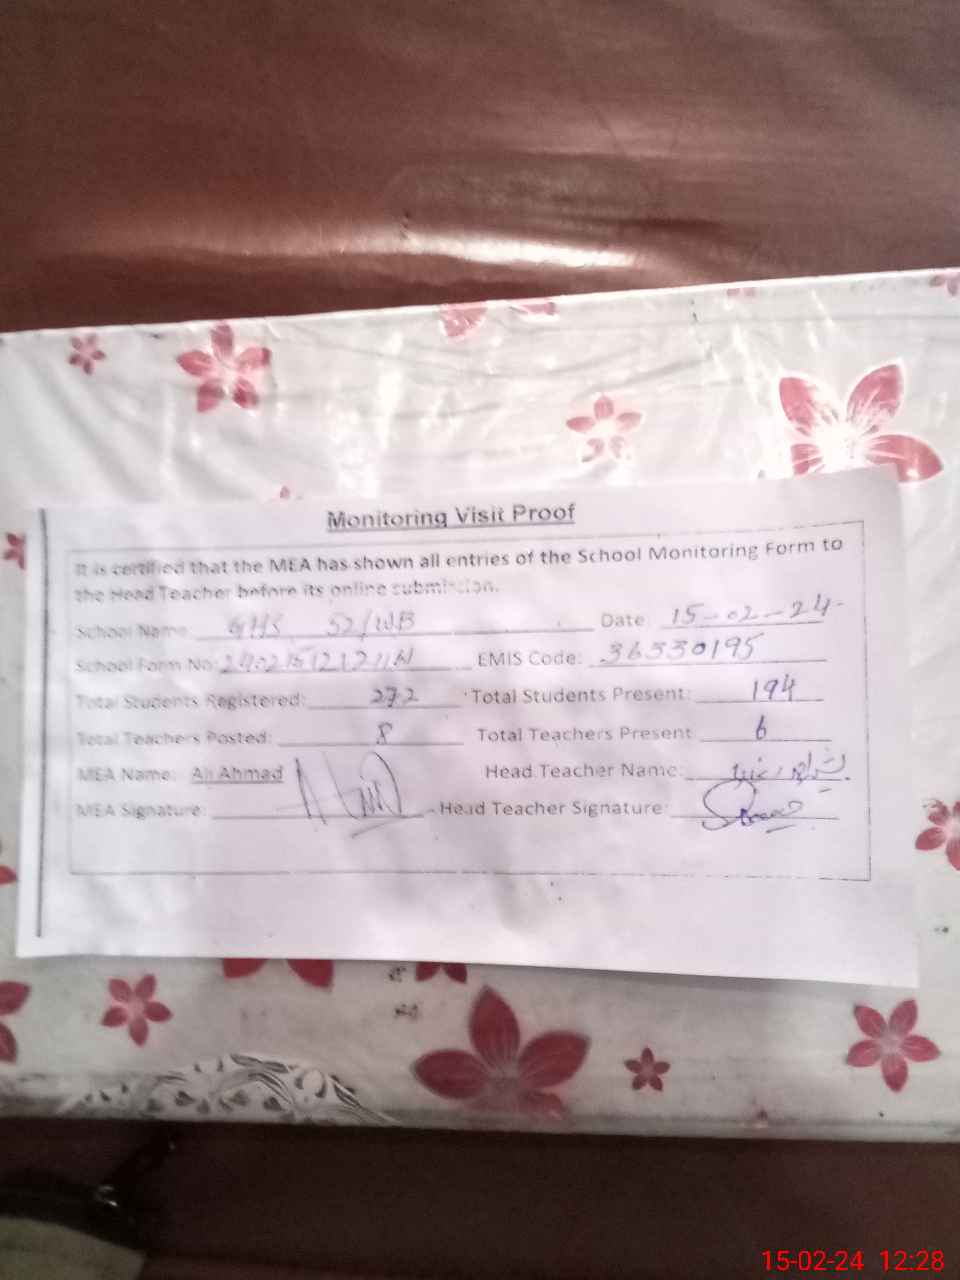 Monitoring Visit Proof
It is certified that the MEA has shown all entries of the School Monitoring Form to
the Head Teacher before its online submission.
School Name: GHS 52/WB Date: 15-02-24
School Form No: EMIS Code: 36330195
Total Students Registered: 272 Total Students Present: 194
Total Teachers Posted: 8 Total Teachers Present 6
MEA Name: Ali Ahmad Head Teacher Name:
MEA Signature: Head Teacher Signature:
15-02-24 12:28